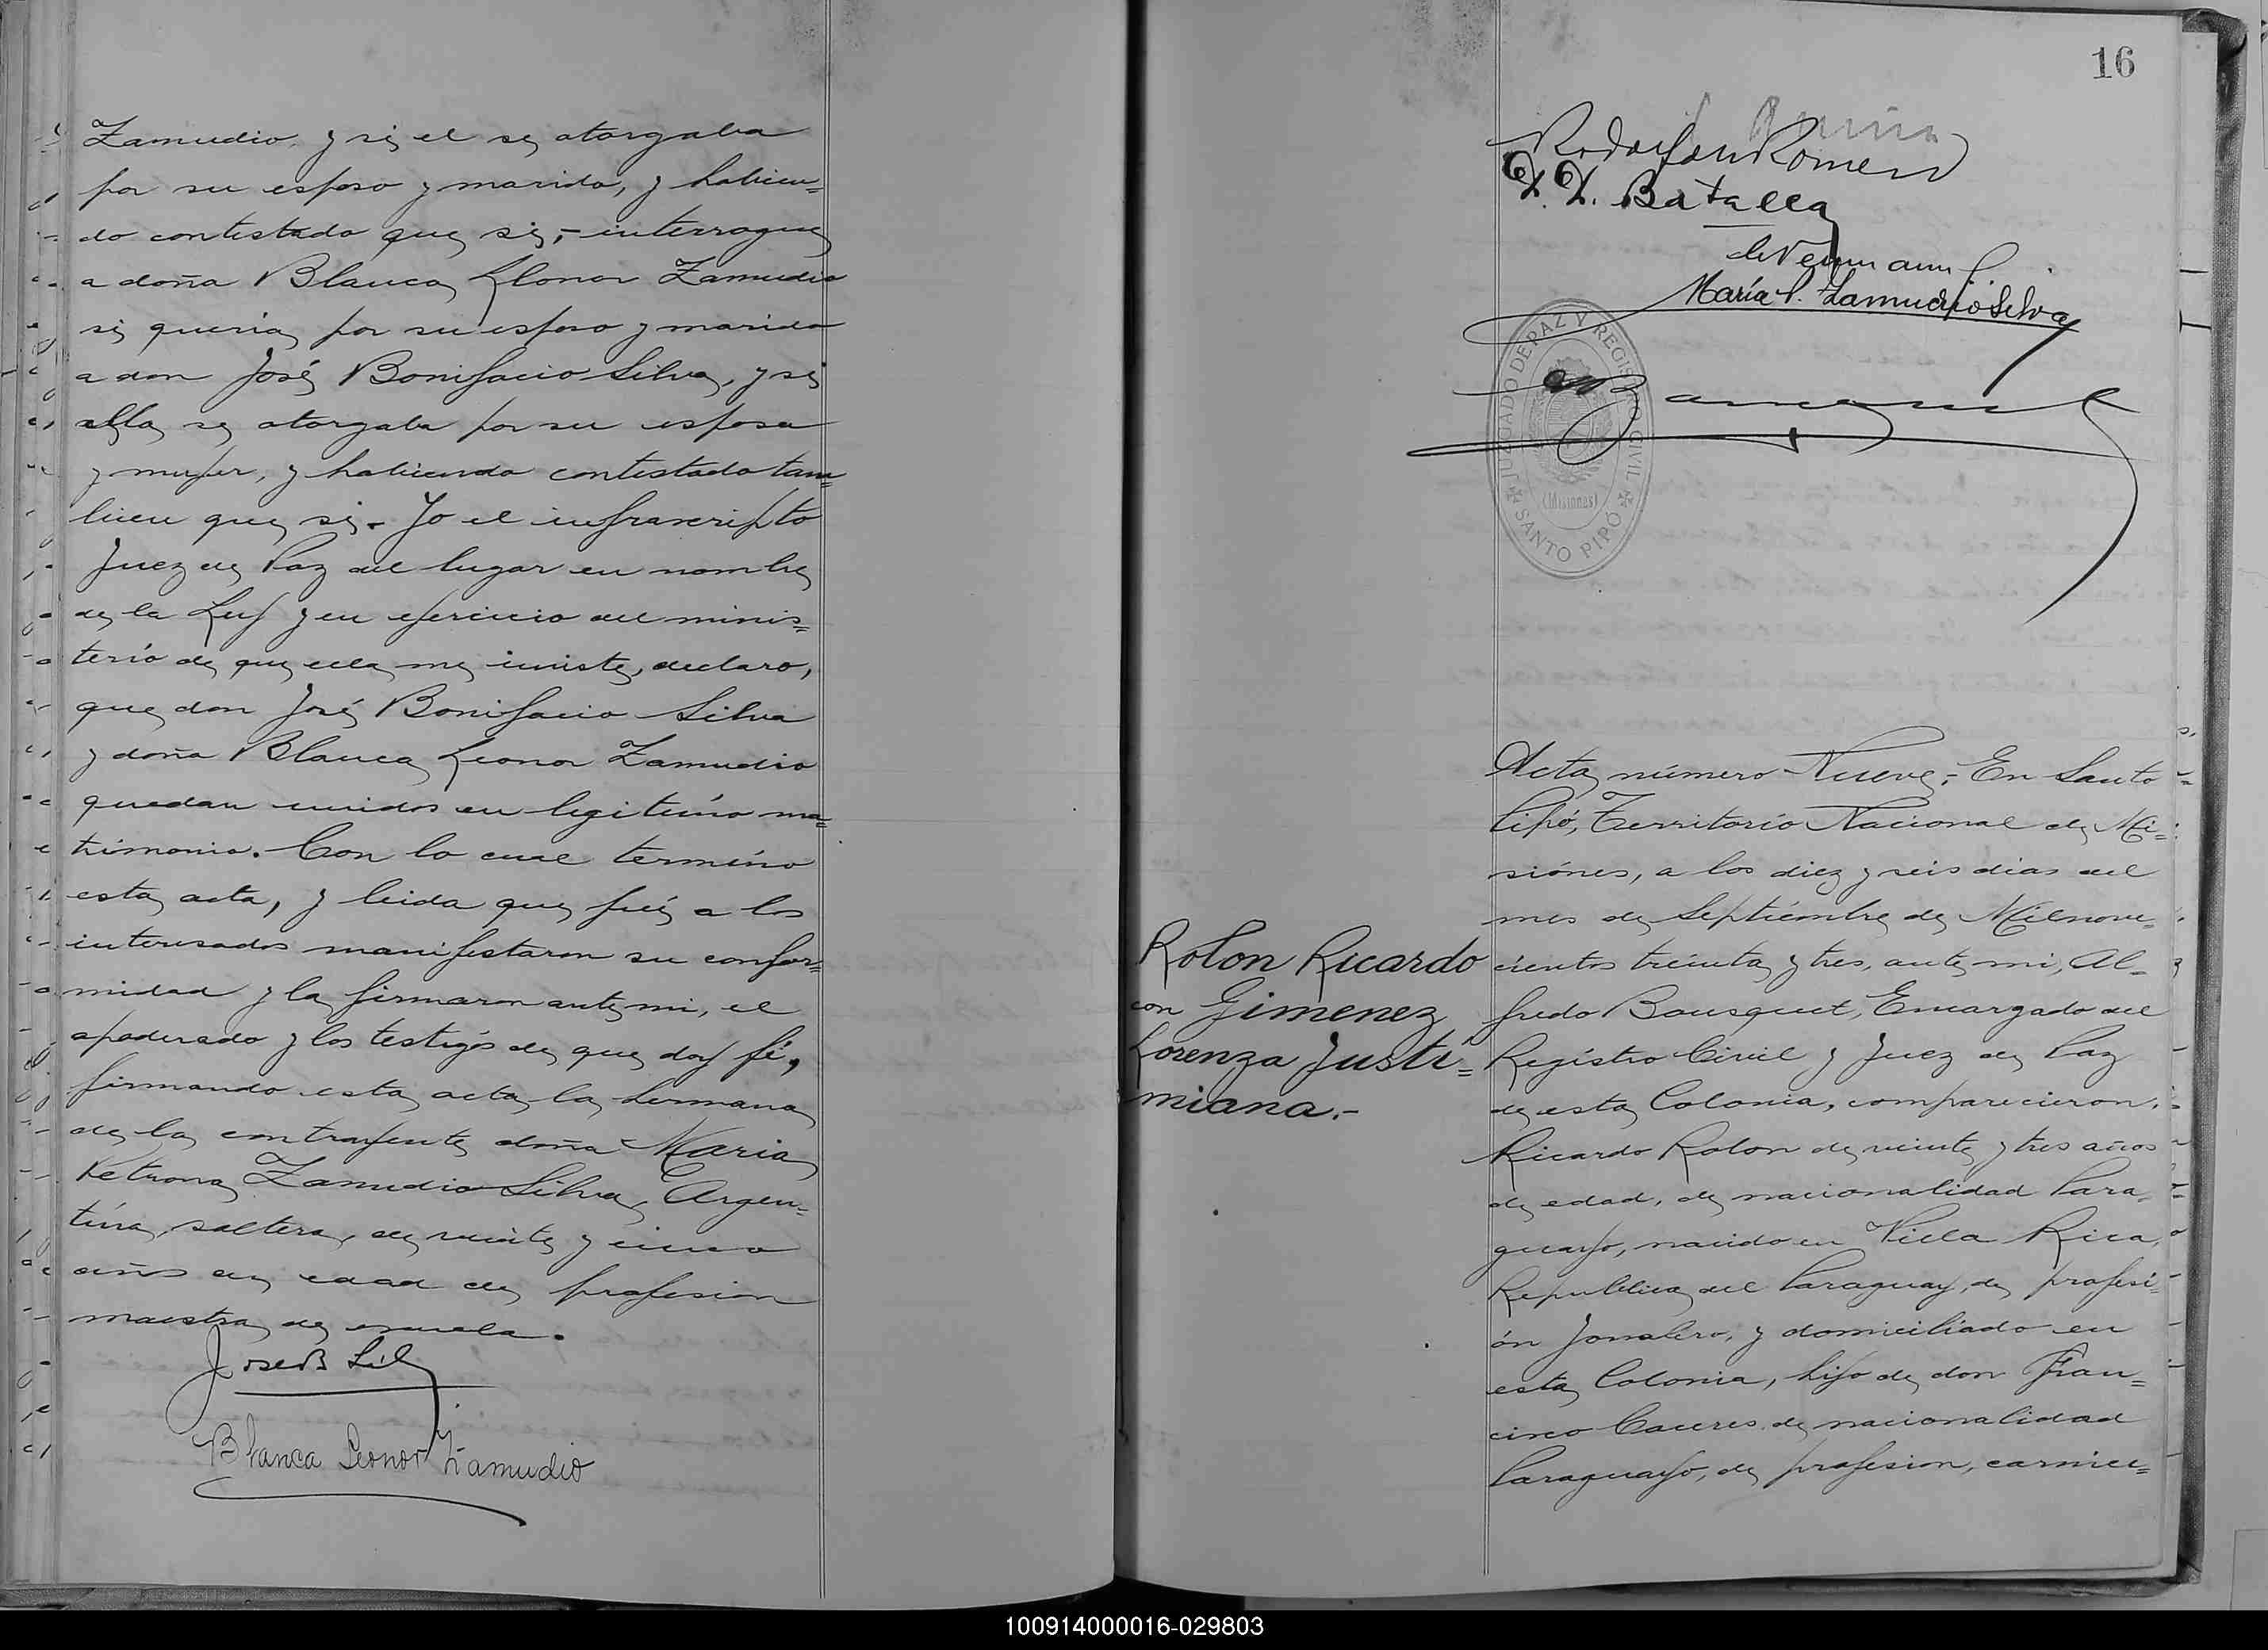 Zamudio, y si el se otorgaba
por su esposo y marido, y habien=
do contestado que si,- interrogue
a doña Blanca Leonor Zamudio
si queria por su esposo y marido
a don José Bonifacio Silva, y si
ella se otorgaba por su esposa
y mujer, y habiendo contestado tam=
bien que si.- Yo el infrascripto
Juez de Paz del lugar en nombre
de la Ley y en ejercicio del minis=
terio de que ella me inviste, declaro,
que don José Bonifacio Silva
y doña Blanca Leonor Zamudio
quedan unidos en legitimo ma=
trimonio. Con lo cual termino
esta acta, y leida que fué a los
interesados manifestaron su confor=
midad y la firmaron ante mi, el
apoderado y los testigos de que doy fé,
firmando esta acta la hermana
de la contrayente doña Maria
Petrona Zamudio Silva, Argen=
tina, soltera, de veinte y cinco
años de edad de profesion
maestra de escuela.
José B Sil
Blanca Leonor Zamudio
16
Romero
Batalla
María P. Zamudio Silva
JUZGADO DE PAZ Y REGISTRO CIVIL
(Misiones)
SANTO PIPÓ
Acta número Nueve,- En Santo
Pipó, Territorio Nacional de Mi=
siónes, a los diez y seis dias del
mes de Septiembre de Milnove=
cientos treinta y tres, ante mi, Al=
fredo Bousquet, Encargado del
Registro Civil y Juez de Paz
de esta Colonia, comparecieron.
Ricardo Rolon de veinte y tres años
de edad, de nacionalidad Para=
guayo, nacido en Villa Rica,
Republica del Paraguay, de profesi=
ón Jornalero, y domiciliado en
esta Colonia, hijo de don Fran=
cisco Caceres de nacionalidad
Paraguayo, de profesion, carnice=
Rolon Ricardo
con Gimenez
Lorenza Justi=
miana.-
100914000016-029803